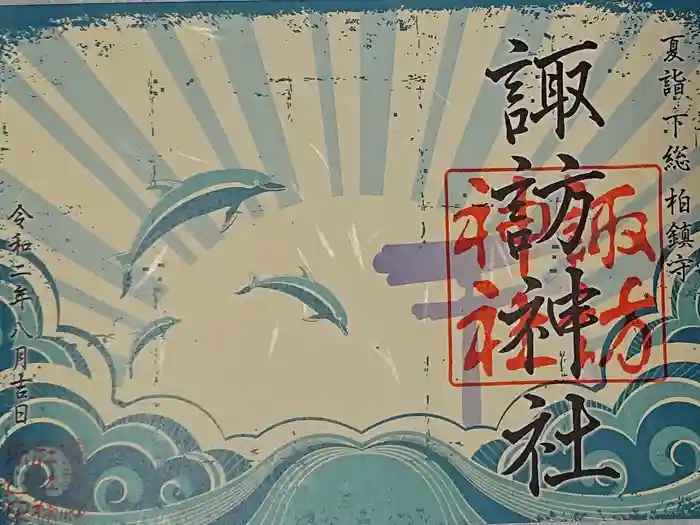 夏詣 下総 柏鎮守
諏訪神社
諏訪
神社
令和二年八月吉日